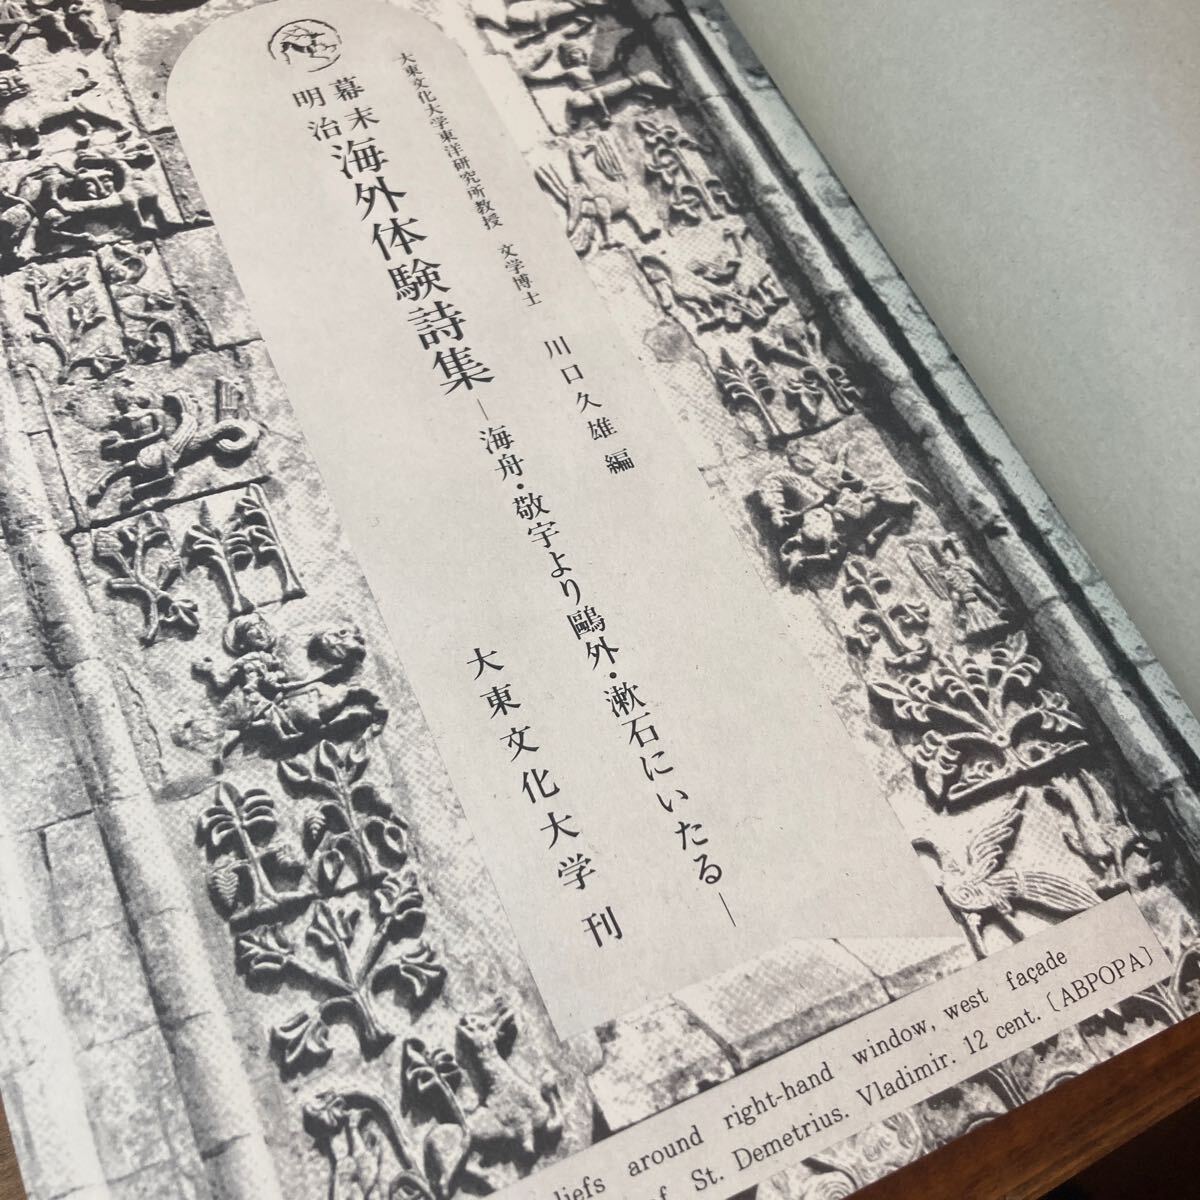 大東文化大学東洋研究所教授 文学博士 川口久雄編
幕末
明治
海外体験詩集
―海舟・敬宇より鷗外・漱石にいたる―
大東文化大学 刊
around right-hand window, west façade
St. Demetrius. Vladimir. 12 cent. 〔ABPOPA〕